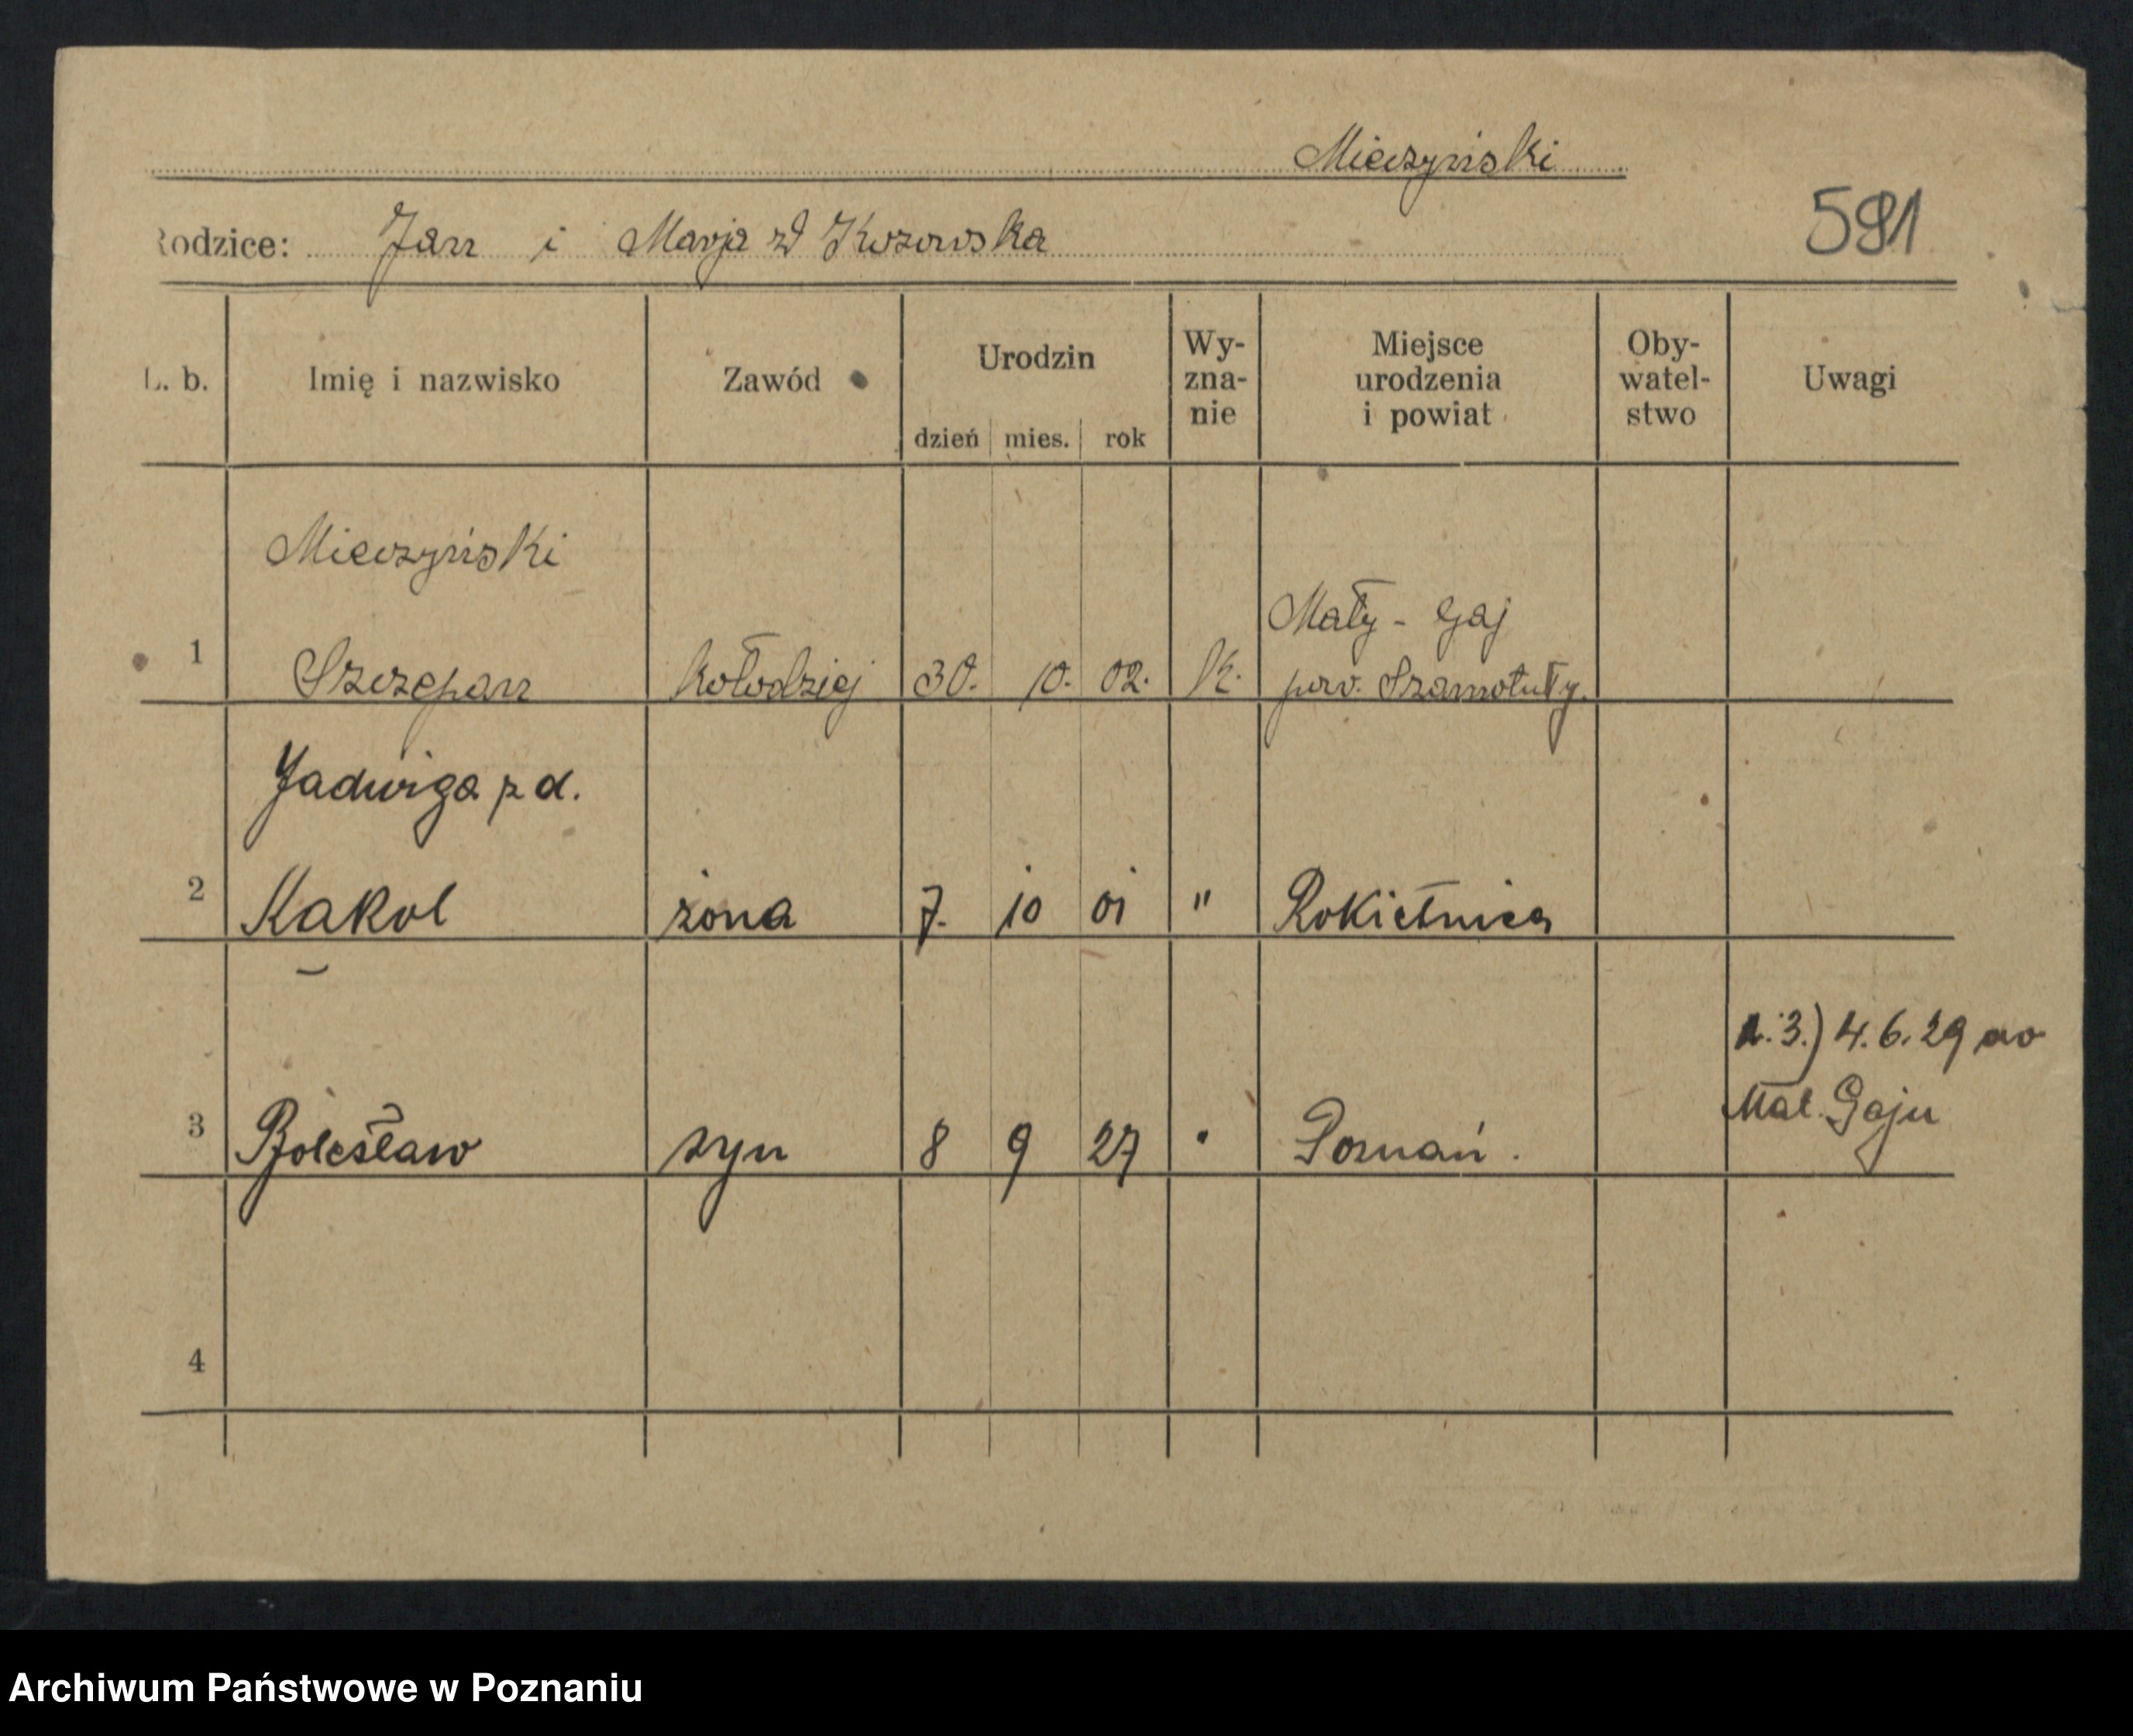 Mieczyński
Rodzice: Jan i Marja zd Kozowska
591
L. b.
Imię i nazwisko
Zawód
Urodzin
dzień mies. rok
Wy-
zna-
nie
Miejsce
urodzenia
i powiat
Oby-
watel-
stwo
Uwagi
Mieczyński
Mały - Gaj
1 Szczepan kołodziej 30. 10. 02. k. pow. Szamotuły.
Jadwiga z d.
2 Kakol żona 7. 10 01 " Rokietnica
3.) 4.6.29 do
Mał. Gaju
3 Bolesław syn 8 9 27 " Poznań.
4
Archiwum Państwowe w Poznaniu